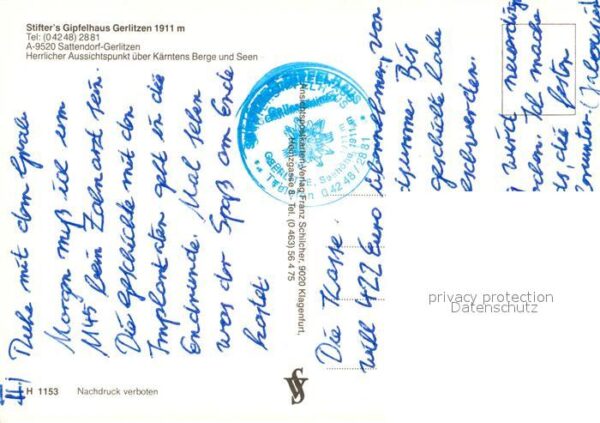 Stifter's Gipfelhaus Gerlitzen 1911 m
Tel: (0 42 48) 28 81
A-9520 Sattendorf-Gerlitzen
Herrlicher Aussichtspunkt über Kärntens Berge und Seen
II.) Ruhe mit dem Grale
Morgen muß ich um
1145 beim Zahnarzt sein.
Die Geschichte mit den
Implantaten geht in die
Endrunde. Mal sehen
was der Spaß am Ende
kostet.
Die Kasse
will 422 Euro übernehmen, von
summe. Bis
geschickt habe
eschwerden.
wird neuerdings
Ich mache
die festen
Ansichtspostkarten-Verlag Franz Schilcher, 9020 Klagenfurt,
gasse 8 - Tel. (0 463) 56 4 75
GIPFELHAUS
04248/2881
privacy protection
Datenschutz
H 1153 Nachdruck verboten